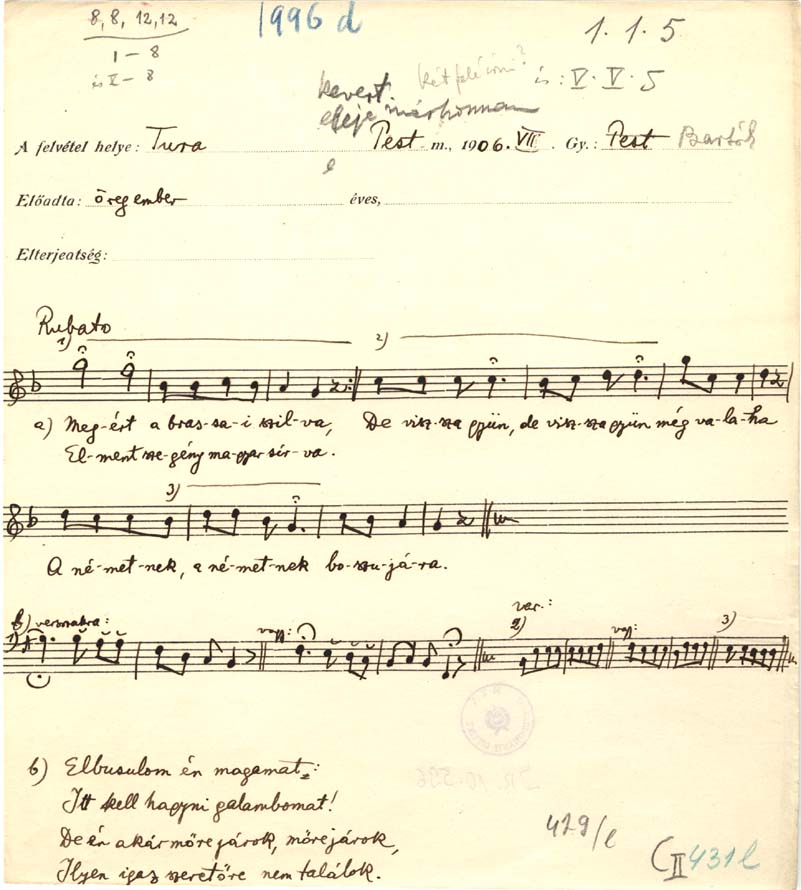 8, 8, 12, 12
1 – 8
és V – 8
1996 d
1. 1. 5
kétféleírni?
és: V. V. 5
kevert
eleje máshonnan
A felvétel helye: Tura Pest m., 1906. VII. Gy.: Pest Bartók
Előadta: öregember éves,
Elterjedtség:
Rubato
1) 2)
a) Meg-ért a bras-sa-i szil-va, De visz-sza gyün, de visz-sza gyün még va-la-ha
El-ment sze-gény ma-gyar sír-va.
3)
A né-met-nek, a né-met-nek bo-szu-já-ra.
b) versszakra: vagy: var.: 2) vagy: 3)
1)
b) Elbusulom én magamat:
Itt kell hagyni galambomat!
De én akármőre járok, mőre járok,
Ilyen igaz szeretőre nem találok.
429/l
C II 431 l